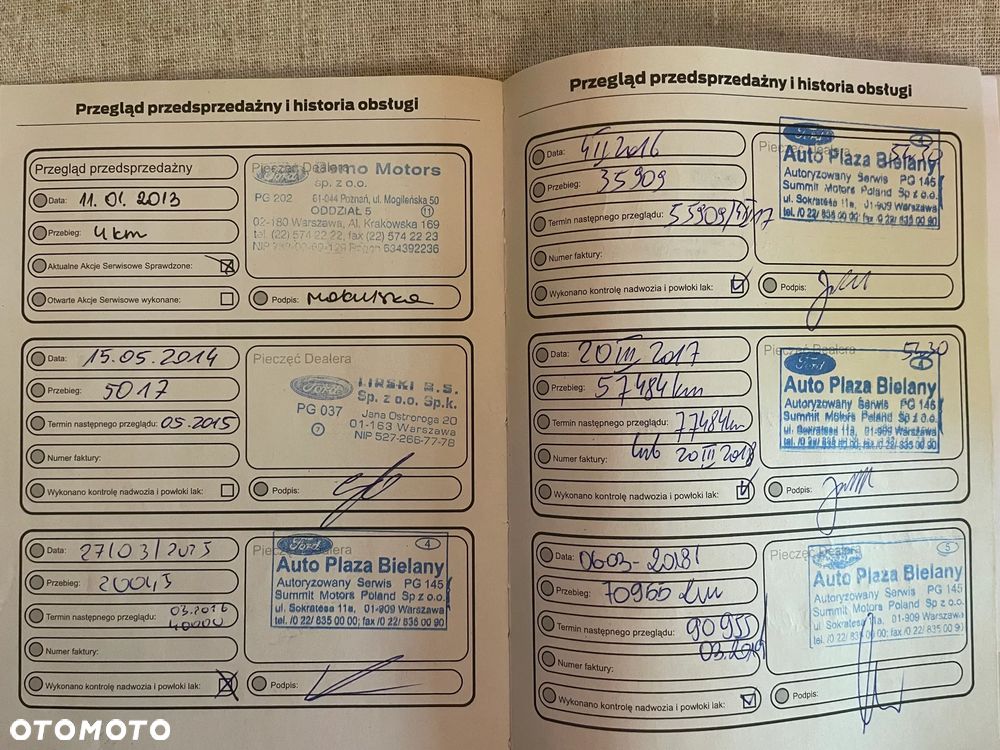 Przegląd przedsprzedażny i historia obsługi
Przegląd przedsprzedażny
Data: 11.01.2013
Przebieg: 4 km
Aktualne Akcje Serwisowe Sprawdzone:
Otwarte Akcje Serwisowe wykonane:
Pieczęć Dealera
Ford
Motors
sp. z o.o.
PG 202 61-044 Poznań, ul. Mogileńska 50
ODDZIAŁ 5 11
02-180 Warszawa, Al. Krakowska 169
tel. (22) 574 22 22, fax (22) 574 22 23
634392236
Podpis:
Data: 15.05.2014
Przebieg: 5017
Termin następnego przeglądu: 05.2015
Numer faktury:
Wykonano kontrolę nadwozia i powłoki lak:
Pieczęć Dealera
Ford
Sp. z o.o. Sp.k.
PG 037
Jana Ostroroga 20
7 01-163 Warszawa
NIP 527-266-77-78
Podpis:
Data: 27/03/2015
Przebieg: 20043
Termin następnego przeglądu: 03.2016
40000
Numer faktury:
Wykonano kontrolę nadwozia i powłoki lak:
Pieczęć Dealera
Ford 4
Auto Plaza Bielany
Autoryzowany Serwis PG 145
Summit Motors Poland Sp z o.o.
ul. Sokratesa 11a, 01-909 Warszawa
tel. /0 22/ 835 00 00; fax /0 22/ 835 00 90
Podpis:
Przegląd przedsprzedażny i historia obsługi
Data: 4 III 2016
Przebieg: 35909
Termin następnego przeglądu: 55909/
Numer faktury:
Wykonano kontrolę nadwozia i powłoki lak:
Pieczęć Dealera
Ford 4
Auto Plaza Bielany
Autoryzowany Serwis PG 145
Summit Motors Poland Sp z o.o.
ul. Sokratesa 11a, 01-909 Warszawa
tel. /0 22/ 835 00 00; fax /0 22/ 835 00 90
Podpis:
Data: 20 III 2017
Przebieg: 57484 km
Termin następnego przeglądu: 77484 km
lub 20 III 2018
Numer faktury:
Wykonano kontrolę nadwozia i powłoki lak:
Pieczęć Dealera
Ford 4
Auto Plaza Bielany
Autoryzowany Serwis PG 145
Summit Motors Poland Sp z o.o.
ul. Sokratesa 11a, 01-909 Warszawa
tel. /0 22/ 835 00 00; fax /0 22/ 835 00 90
Podpis:
Data: 06-03-2018
Przebieg: 70955 km
Termin następnego przeglądu: 90955
03.2019
Numer faktury:
Wykonano kontrolę nadwozia i powłoki lak:
Pieczęć Dealera
5
Auto Plaza Bielany
Autoryzowany Serwis PG 145
Summit Motors Poland Sp z o.o.
ul. Sokratesa 11a, 01-909 Warszawa
tel. /0 22/ 835 00 00; fax /0 22/ 835 00 90
Podpis:
OTOMOTO